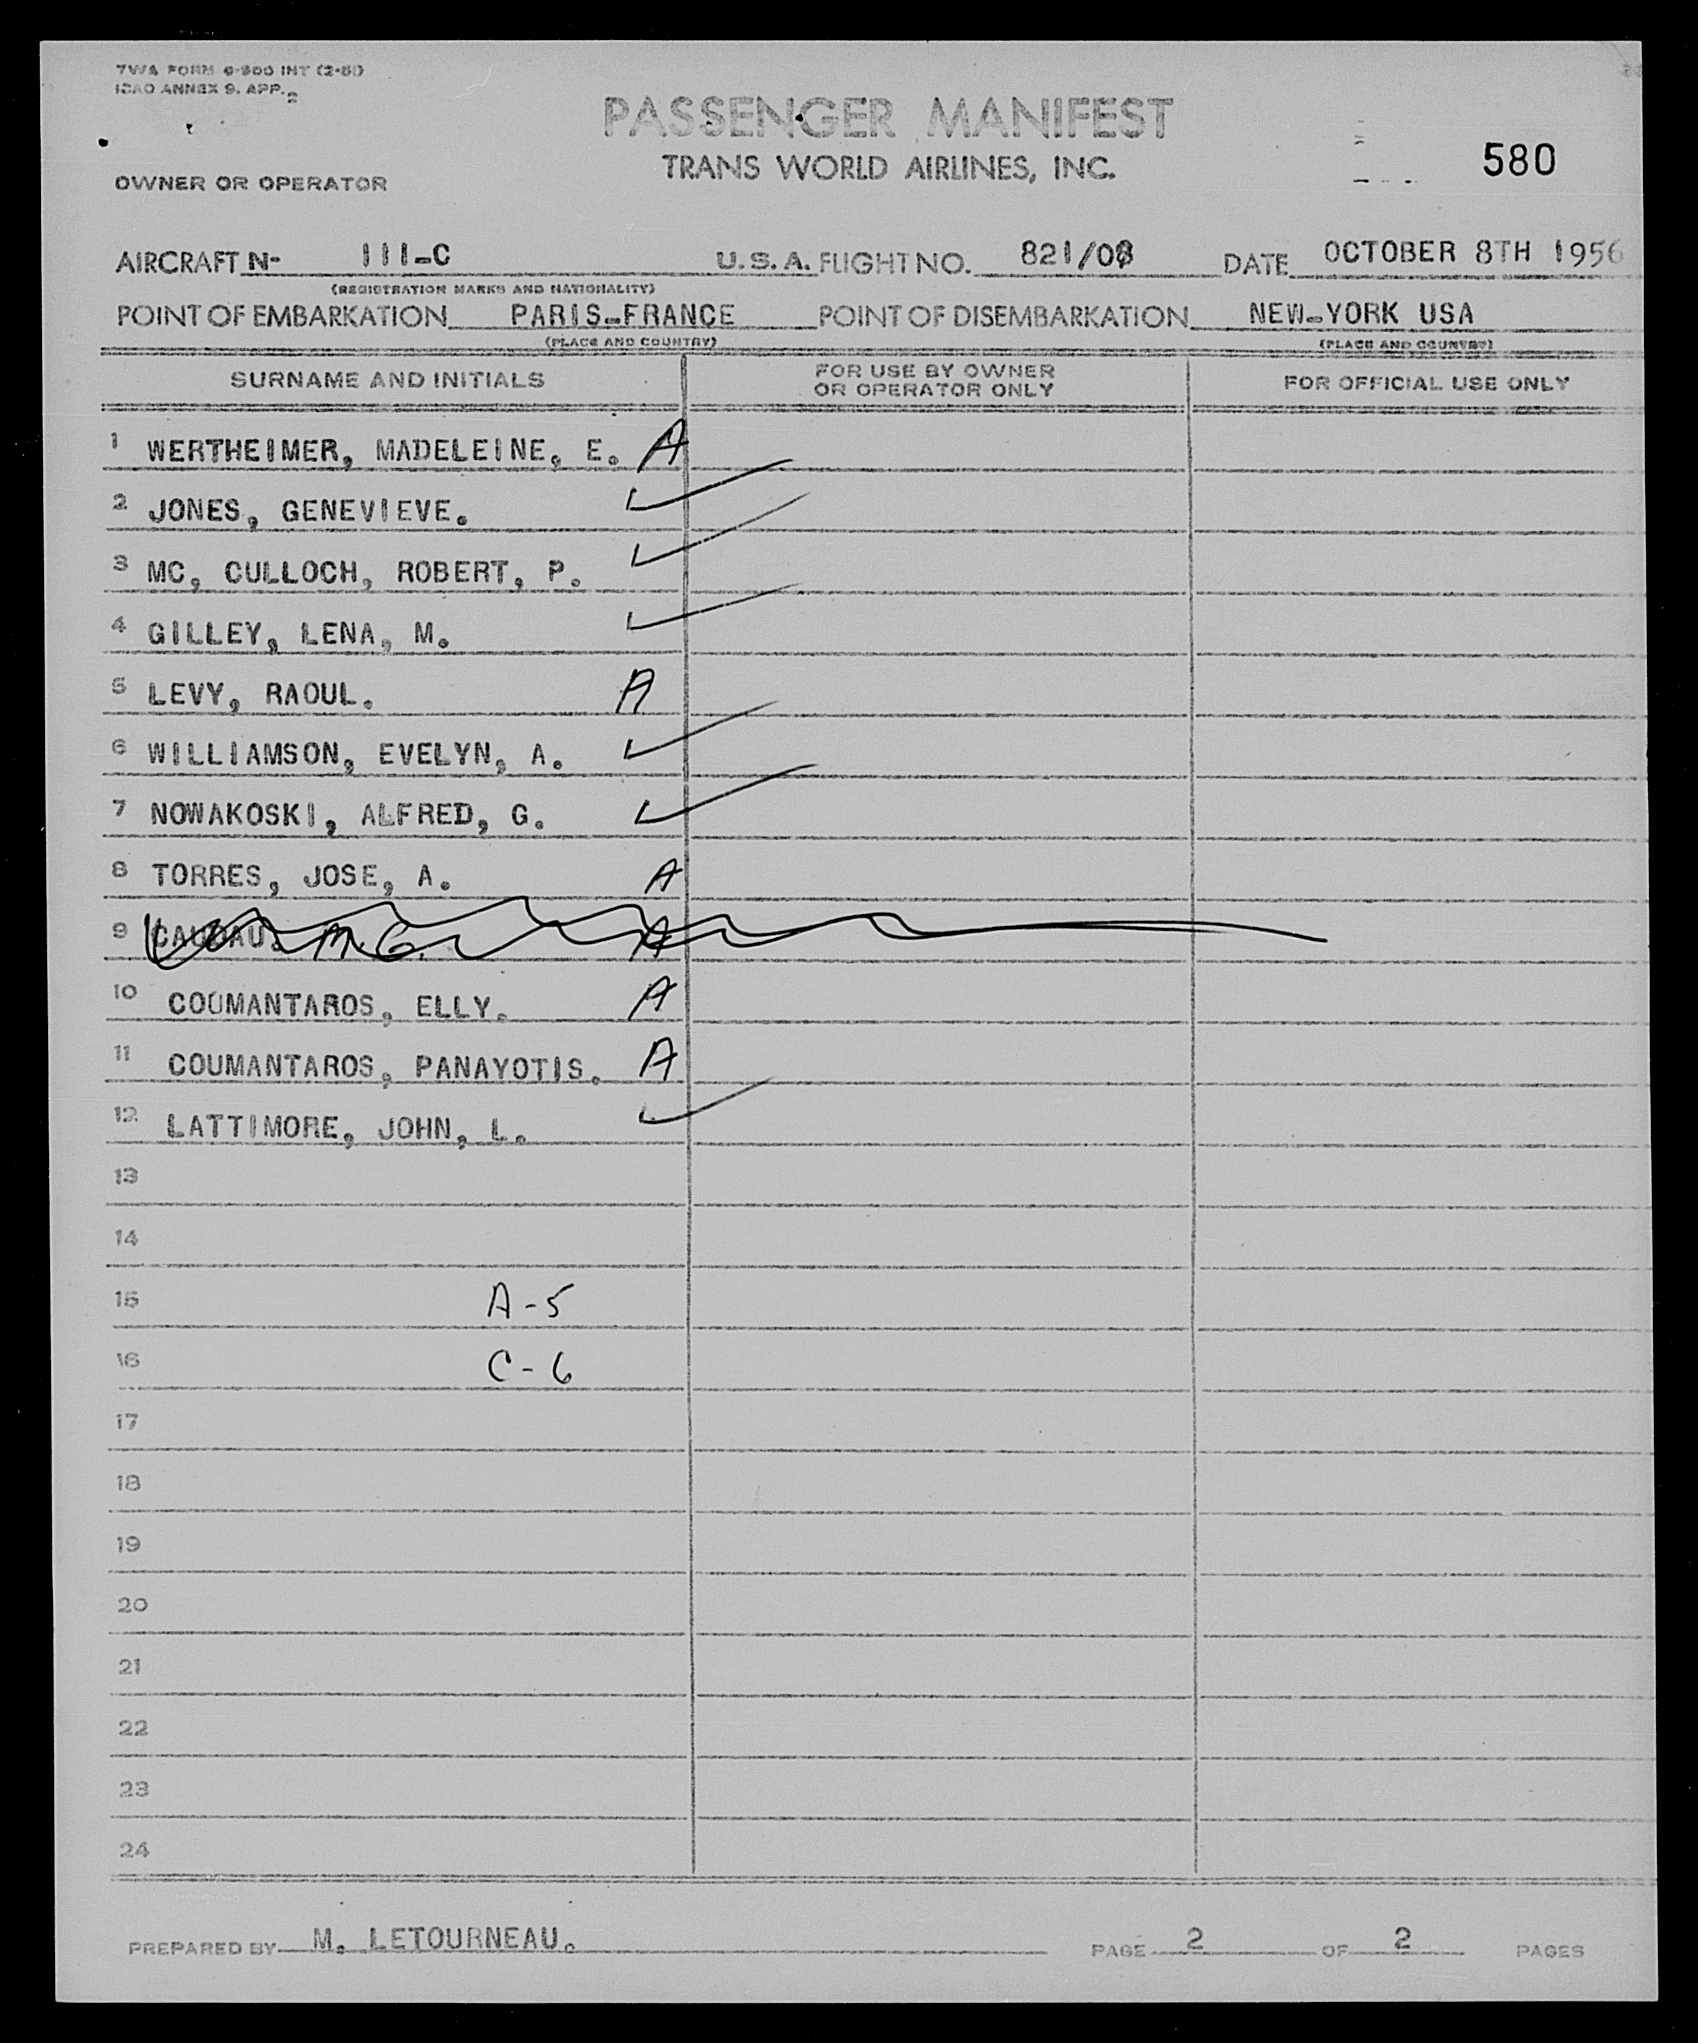 TWA FORM 6-900 INT (2-51)
ICAO ANNEX 9. APP. 2
PASSENGER MANIFEST
TRANS WORLD AIRLINES, INC.
580
OWNER OR OPERATOR
AIRCRAFT N- 111-C U.S.A. FLIGHT NO. 821/08 DATE OCTOBER 8TH 1956
(REGISTRATION MARKS AND NATIONALITY)
POINT OF EMBARKATION PARIS-FRANCE POINT OF DISEMBARKATION NEW-YORK USA
(PLACE AND COUNTRY) (PLACE AND COUNTRY)
SURNAME AND INITIALS FOR USE BY OWNER OR OPERATOR ONLY FOR OFFICIAL USE ONLY
1 WERTHEIMER, MADELEINE, E. A
2 JONES, GENEVIEVE. ✓
3 MC, CULLOCH, ROBERT, P. ✓
4 GILLEY, LENA, M. ✓
5 LEVY, RAOUL. A
6 WILLIAMSON, EVELYN, A. ✓
7 NOWAKOSKI, ALFRED, G. ✓
8 TORRES, JOSE, A. A
9 M.G. A
10 COUMANTAROS, ELLY. A
11 COUMANTAROS, PANAYOTIS. A
12 LATTIMORE, JOHN, L. ✓
13
14
15 A-5
16 C-6
17
18
19
20
21
22
23
24
PREPARED BY M. LETOURNEAU. PAGE 2 OF 2 PAGES